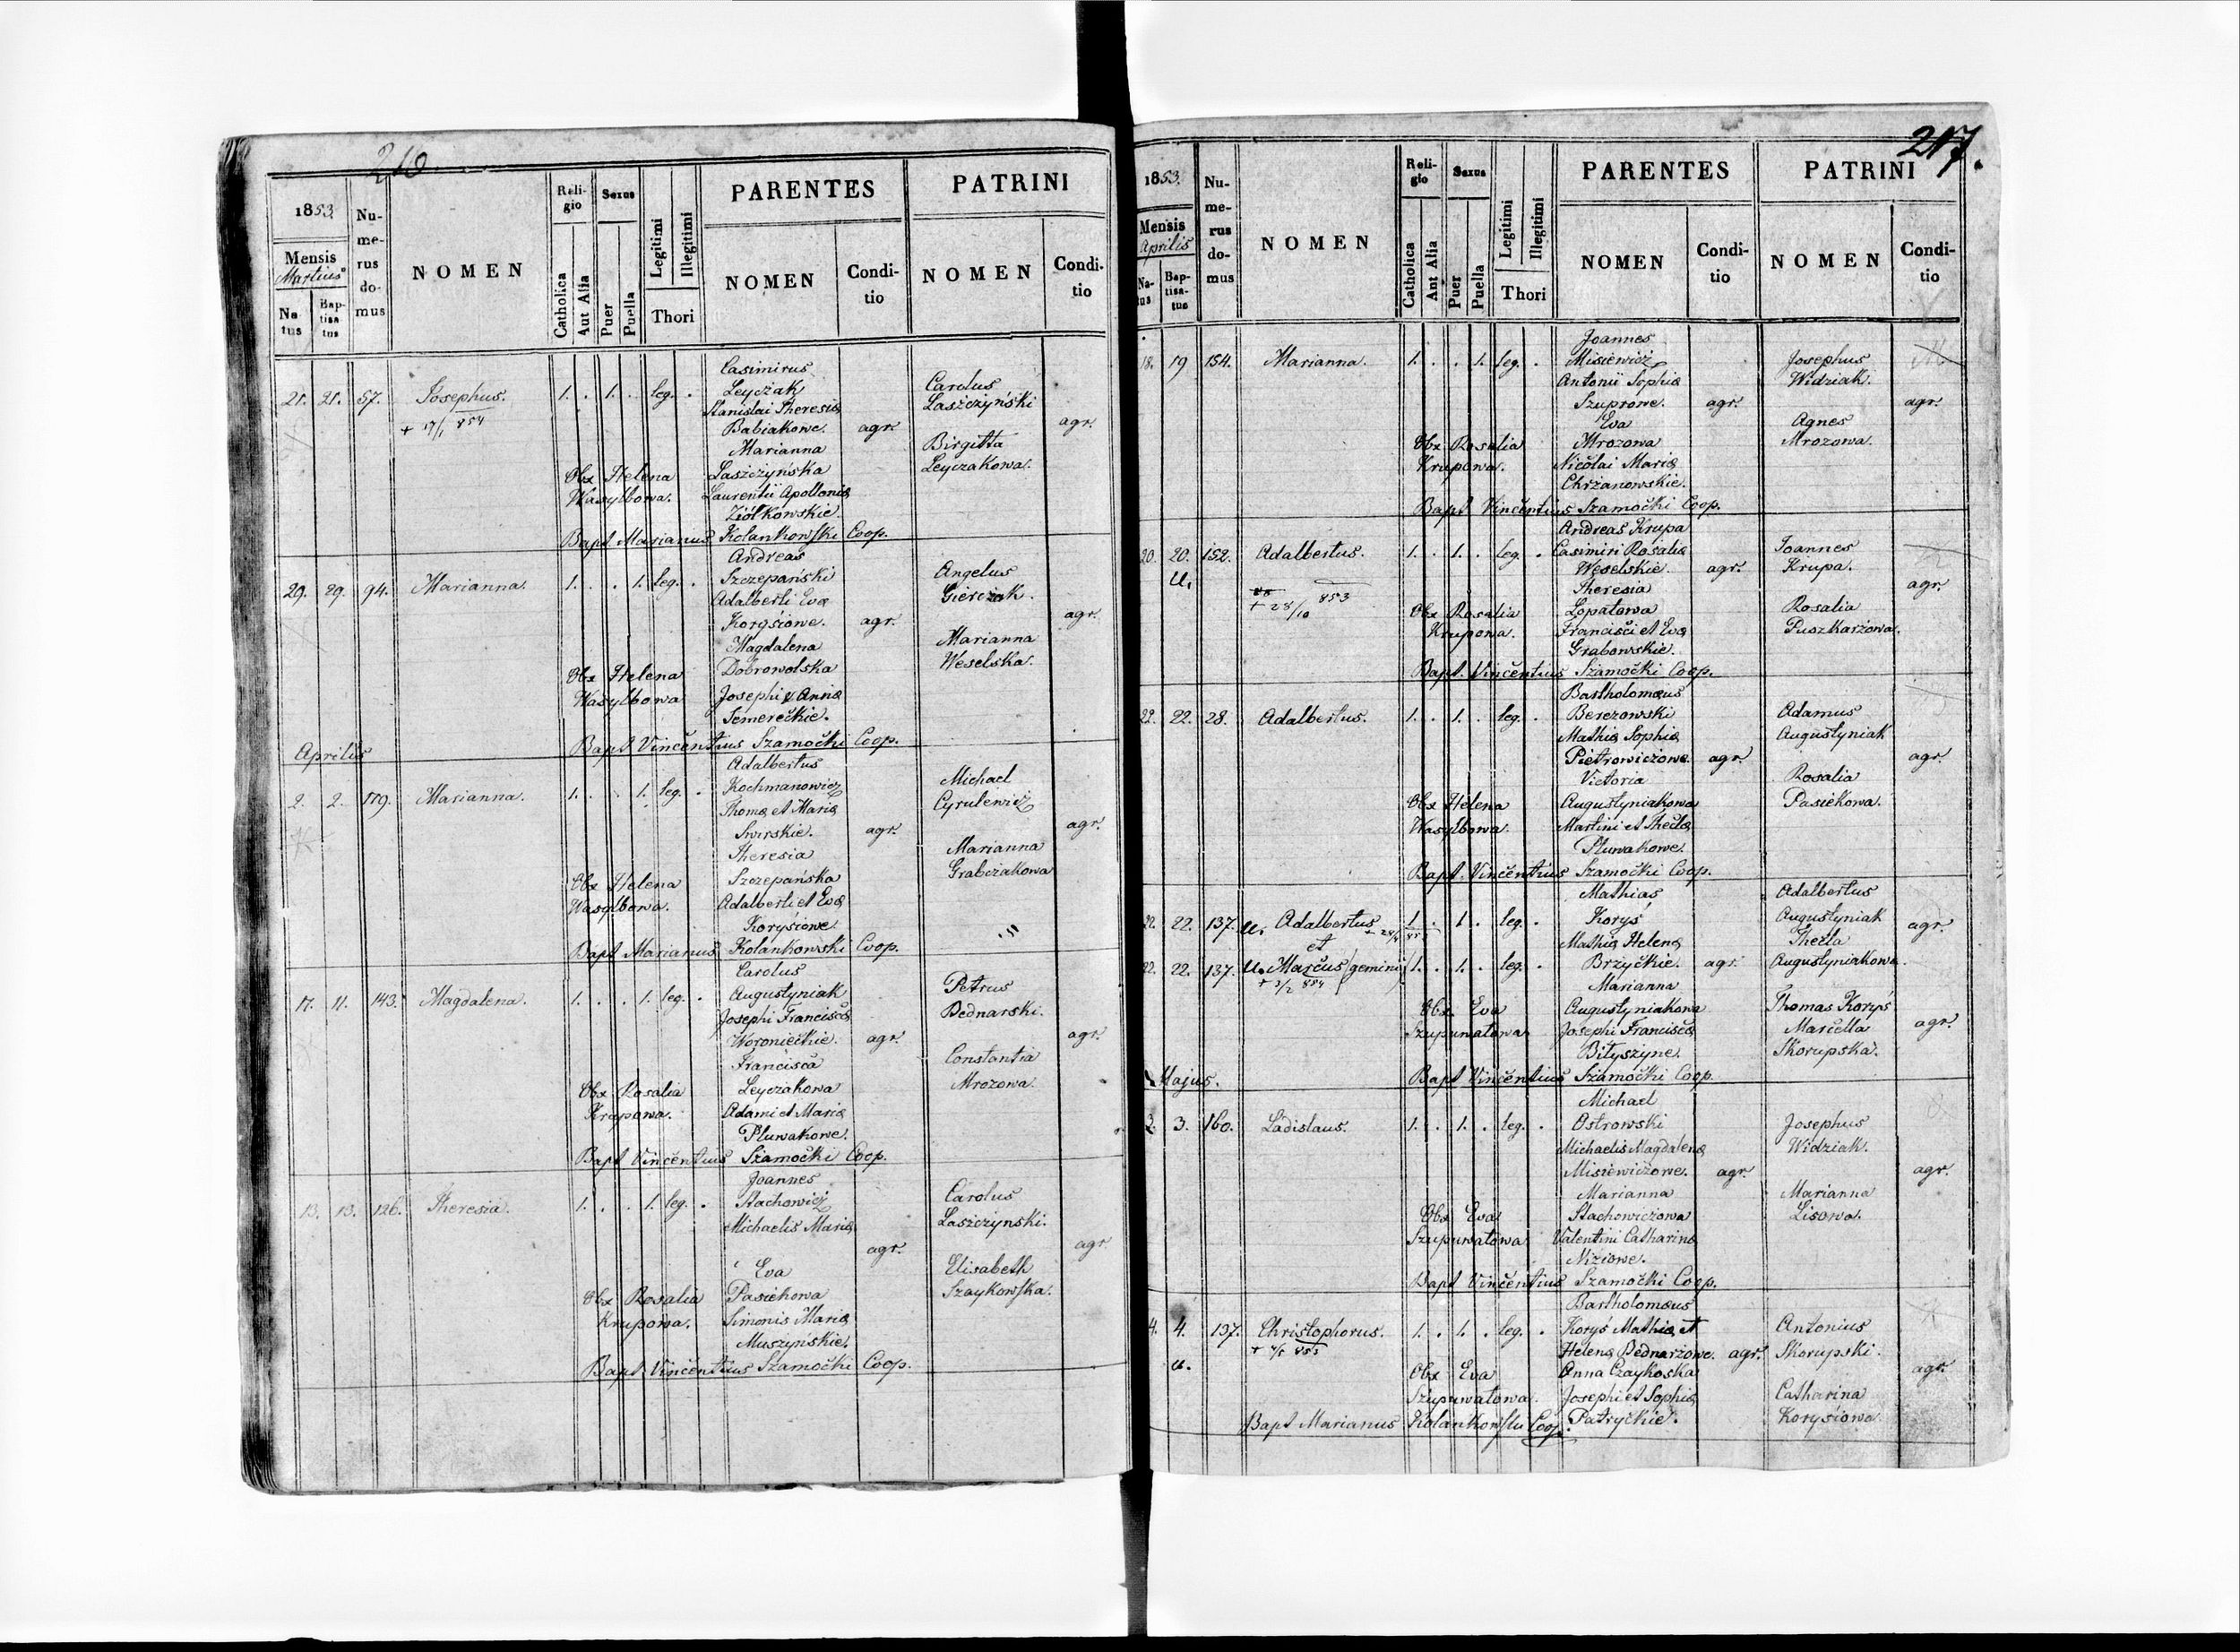 216.
1853.
Mensis
Martius
Na
tus
Bap-
tisa-
tus
Nu-
me-
rus
do-
mus
NOMEN
Reli-
gio
Catholica
Aut Alia
Sexus
Puer
Puella
Legitimi
Illegitimi
Thori
PARENTES
NOMEN
Condi-
tio
PATRINI
NOMEN
Condi-
tio
Casimirus
21. 21. 57. Josephus. 1. . 1. . leg. . Leyczak Carolus
Stanislai Theresiæ Laszczyński
+ 17/1 854 Babiakowe. agr. agr.
Marianna Birgitta
Obx Helena Laszczyńska Leyczakowa.
Wasylbowa. Laurentii Apolloniæ
Ziółkowskie.
Bapt Marianus Kolankowski Coop.
Andreas
29. 29. 94. Marianna. 1. . . 1. leg. . Szczepański Angelus
Adalberti Evæ Gierczak.
Korysiowe. agr. agr.
Magdalena Marianna
Obx Helena Dobrowolska Weselska.
Wasylbowa Josephi & Annæ
Semereckie.
Bapt Vincentius Szamocki Coop.
Aprilis
Adalbertus
2. 2. 179. Marianna. 1. . . 1. leg. . Kochmanowicz Michael
Thomæ et Mariæ Cyrulewicz
Swirskie. agr. agr.
Theresia Marianna
Obx Helena Szczepańska Grabczakowa
Wasylbowa. Adalberti et Evæ
Korysiowe.
Bapt Marianus Kolankowski Coop.
Carolus
11. 11. 143. Magdalena. 1. . . 1. leg. . Augustyniak Petrus
Josephi Franciscæ Bednarski.
Woronieckie. agr. agr.
Francisca Constantia
Obx Rosalia Leyczakowa Mrozowa.
Krupowa. Adami et Mariæ
Pluwakowe.
Bapt Vincentius Szamocki Coop.
Joannes
13. 13. 126. Theresia. 1. . . 1. leg. . Stachowicz Carolus
Michaelis Mariæ Laszczynski.
agr. agr.
Eva Elisabeth
Obx Rosalia Pasiekowa Szaykowska.
Krupowa. Simonis Mariæ
Muszyńskie.
Bapt Vincentius Szamocki Coop.
217.
1853.
Mensis
Aprilis
Na-
tus
Bap-
tisa-
tus
Nu-
me-
rus
do-
mus
NOMEN
Reli-
gio
Catholica
Aut Alia
Sexus
Puer
Puella
Legitimi
Illegitimi
Thori
PARENTES
NOMEN
Condi-
tio
PATRINI
NOMEN
Condi-
tio
Joannes
18. 19 154. Marianna. 1. . . 1. leg. . Misiewicz Josephus
Antonii Sophiæ Widziak.
Szuprowe. agr. agr.
Eva Agnes
Obx Rosalia Mrozowa Mrozowa.
Krupowa. Nicolai Mariæ
Chrzanowskie.
Bapt Vincentius Szamocki Coop.
Andreas Krupa
20. 20. 152. Adalbertus. 1. . 1. . leg. . Casimiri Rosaliæ Joannes
Weselskie. agr. Krupa.
+ 28/10 853 Theresia agr.
Obx Rosalia Lopatowa Rosalia
Krupowa. Francisci et Evæ Puszkarzowa.
Grabowskie.
Bapt. Vincentius Szamocki Coop.
Bartholomæus
22. 22. 28. Adalbertus. 1. . 1. . leg. . Berezowski Adamus
Mathiæ Sophiæ Augustyniak
Pietrowiczowe. agr. agr.
Victoria Rosalia
Obx Helena Augustyniakowa Pasiekowa.
Wasylbowa. Martini et Theclæ
Pluwakowe.
Bapt. Vincentius Szamocki Coop.
Mathias Adalbertus
22. 22. 137. Adalbertus 1. . 1. . leg. . Koryś Augustyniak agr.
et Mathiæ Helenæ Thecla
22. 22. 137. Marcus gemini 1. . 1. . leg. . Brzyckie. agr. Augustyniakowa.
+ 3/2 854 Marianna
Obx Eva Augustyniakowa Thomas Koryś
Szupuwatowa Josephi Franciscæ Marcella agr.
Bityszyne. Skorupska.
Majus. Bapt Vincentius Szamocki Coop.
Michael
2. 3. 160. Ladislaus. 1. . 1. . leg. . Ostrowski Josephus
Michaelis Magdalenæ Widziak.
Misiewiczowe. agr. agr.
Marianna Marianna
Obx Eva Stachowiczowa Lisowa.
Szupuwatowa Valentini Catharinæ
Niziowe.
Bapt Vincentius Szamocki Coop.
Bartholomæus
4. 4. 137. Christophorus. 1. . 1. . leg. . Koryś Mathiæ et Antonius
Helenæ Bednarzowe. agr. Skorupski.
Obx Eva Anna Czaykoska agr.
Szupuwatowa. Josephi et Sophiæ Catharina
Bapt Marianus Kolankowski Coop. Patryckie. Korysiowa